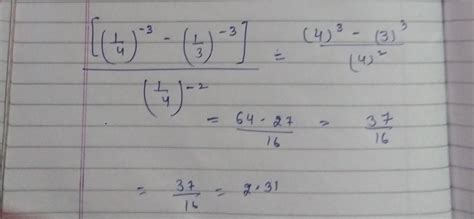 [(1/4)^-3 - (1/3)^-3] / (1/4)^-2 = (4)^3 - (3)^3 / (4)^2
= 64 - 27 / 16 = 37/16
= 37/16 = 2.31